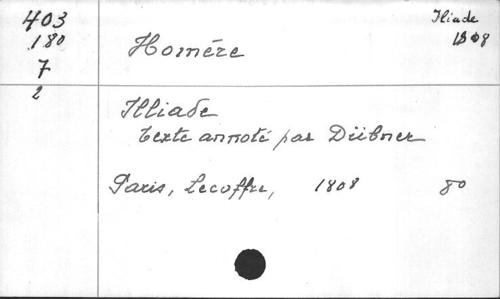 403
180
7
2
Iliade
1808
Homére
Illiade
texte annoté par Dübner
Paris, Lecoffre, 1808 80